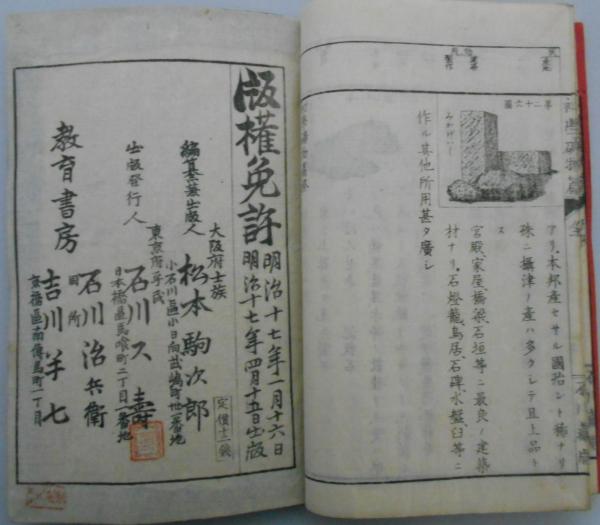 第二十六圖
みかげいし
アリ、本邦産セサル國殆ント稀ナリ
殊ニ攝津ノ産ハ多クシテ且上品トス
宮殿、家屋、橋梁、石垣等ニ最良ノ建築
材ナリ、石燈籠、鳥居、石碑、水盤、臼等ニ
作ル其他所用甚タ廣シ
版權免許
明治十七年一月十六日
明治十七年四月十五日出版
定價十二錢
大阪府士族
編纂兼出版人
松本駒次郎
東京府平民
出版發行人
石川
壽
日本橋區馬喰町二丁目一番地
石川治兵衛
同所
教育書房
吉川半七
京橋區南傳馬町一丁目